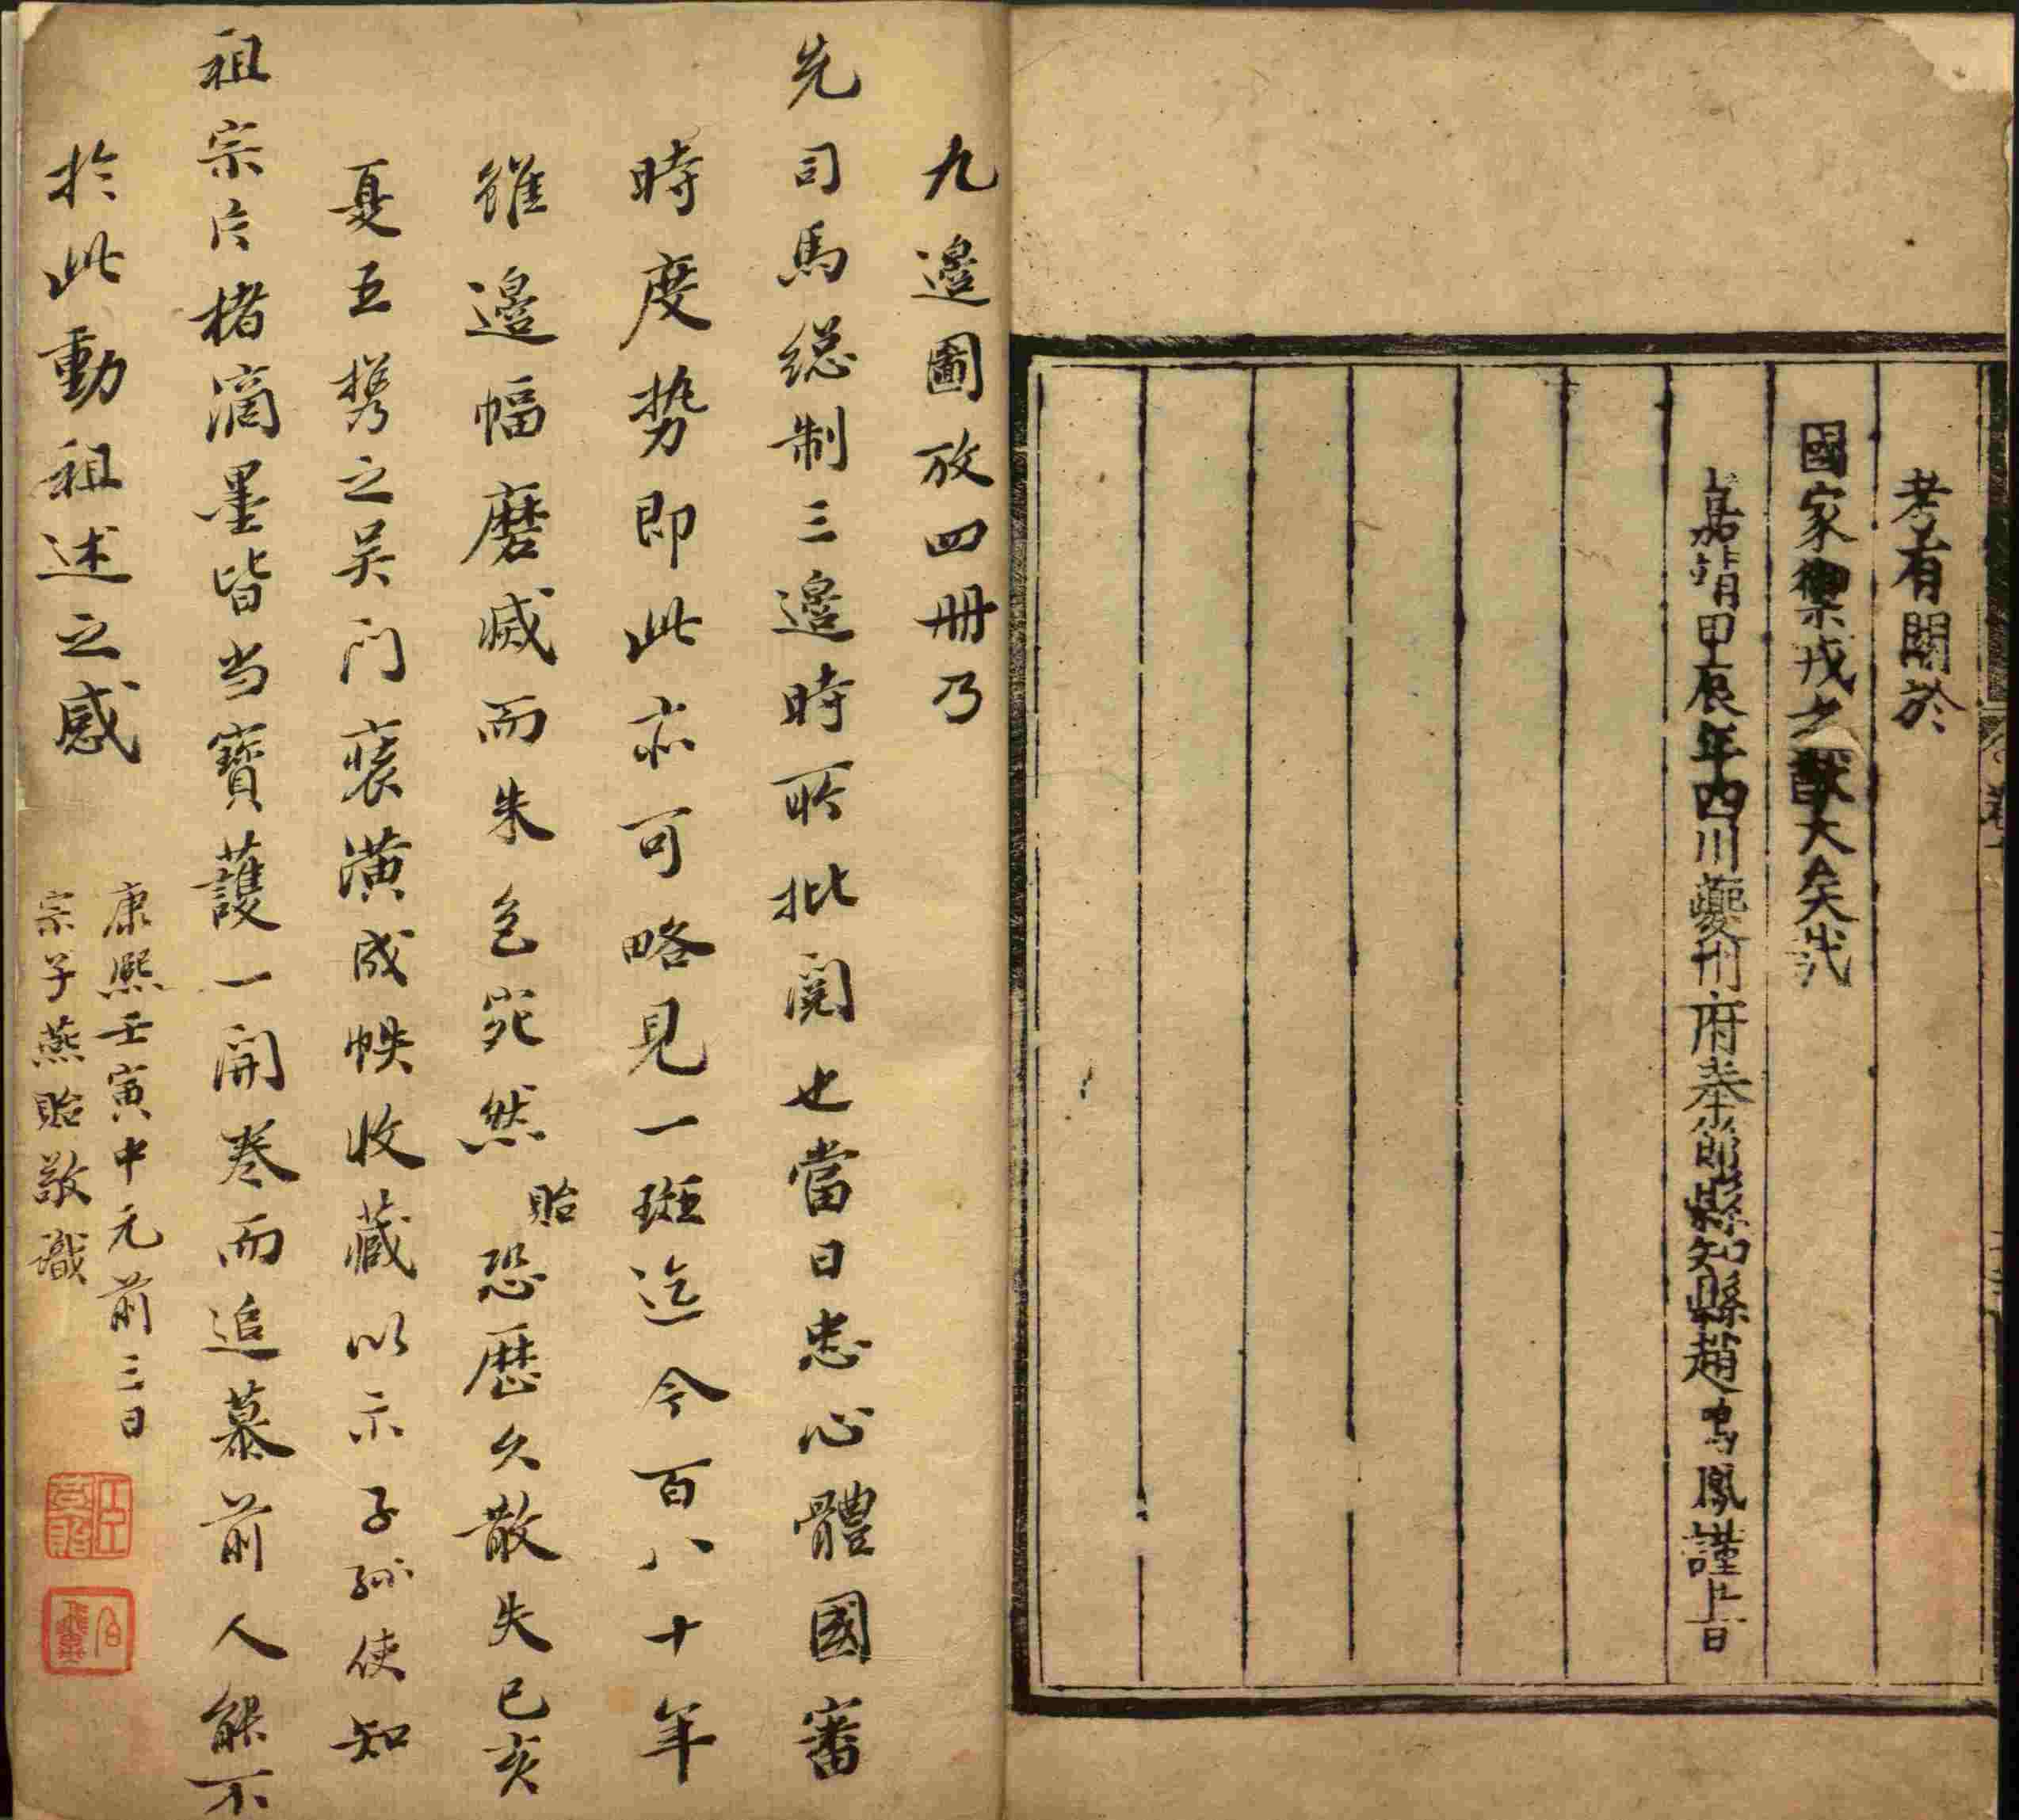 考有關於
國家禦戎之猷大矣哉
嘉靖甲辰年四川夔州府奉節縣知縣趙鳴鳳謹旹
九邉圖放四冊乃
先司馬総制三邉時所批閱也當日忠心體國審
時度势即此亦可略見一斑迄今百八十年
雖邉幅磨滅而朱色宛然貽恐歷久散失己亥
夏五携之吴门裝潢成帙收藏以示子孫使知
祖宗片楮滴墨皆当寳護一開卷而追慕前人能不
扵此動祖述之感
康熙壬寅中元前三日
宗子燕貽敬識